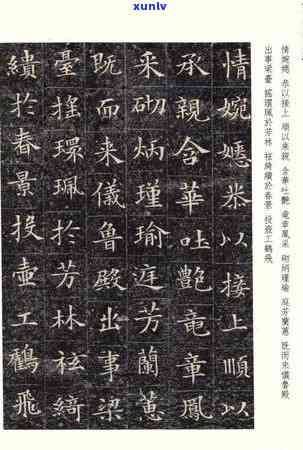 xunlv
情婉嫕 恭以接上 順以承親 含華吐艷 竜章鳳采 砌炳瑾瑜 庭芳蘭蕙 既而来儀魯殿
出事梁臺 搖環珮於芳林 袨綺繢於春景 投壺工鶴飛
情婉嫕恭以接上順以
承親含華吐艷竜章鳳
采砌炳瑾瑜庭芳蘭蕙
既而来儀魯殿出事梁
臺搖環珮於芳林袨綺
繢於春景投壺工鶴飛